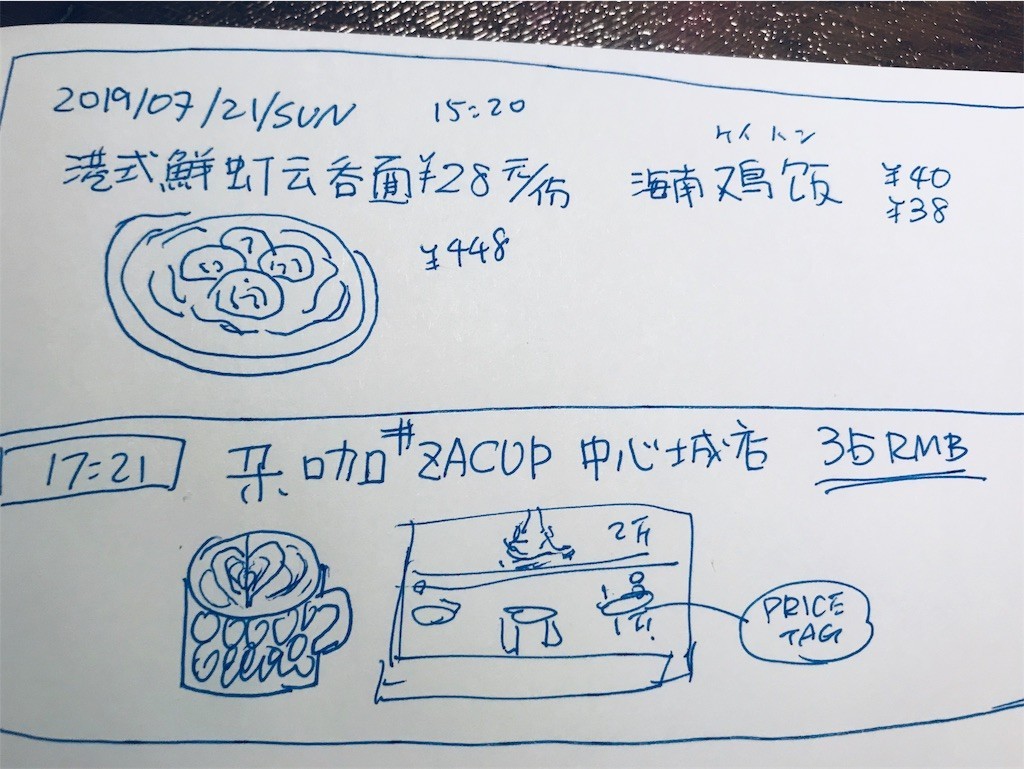 2019/07/21/SUN 15:20
ケイハン
港式鮮虾云吞面¥28元/份 海南鸡饭 ¥40
¥38
¥448
17:21 朵咖#ZACUP 中心城店 35RMB
2F
1F
PRICE
TAG